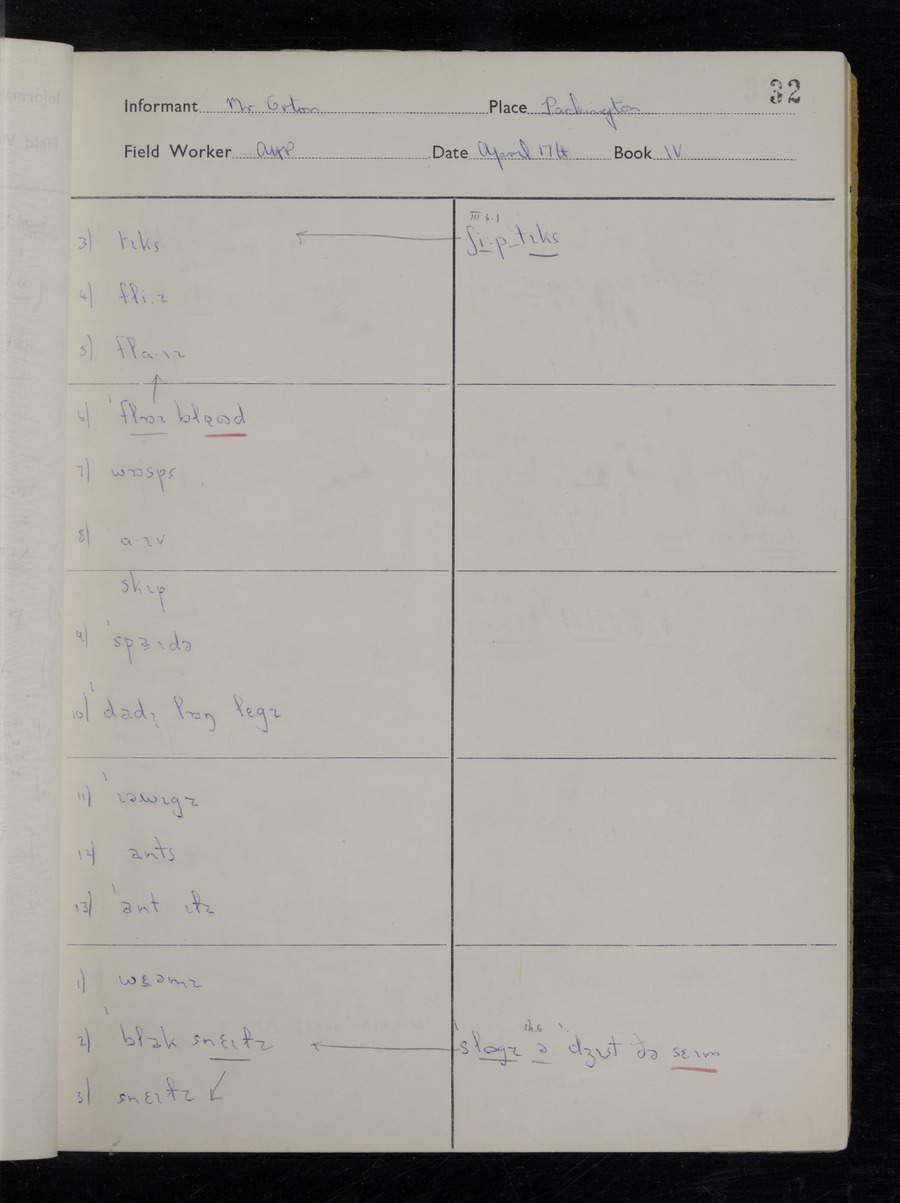 32
Informant Mr Orton Place Packington
Field Worker Date April 17th Book IV
III 6.1
3) tɪks ʃi:p tɪks
4) fli:z
5) flaˑɪz
6) ˈflɒɪ
7) wɒsps
8) aˑɪv
skɪp
9) ˈspaɪdə
10) ˈdadɪ lɒŋ legz
11) ˈɪəwɪgz
12) ants
13) ˈant
1) wɛəmz
sh.s
2) ˈblak snɛɪɫz ˈslogz ə ˈdʒʊst ðə sɛɪm
3) snɛɪɫz